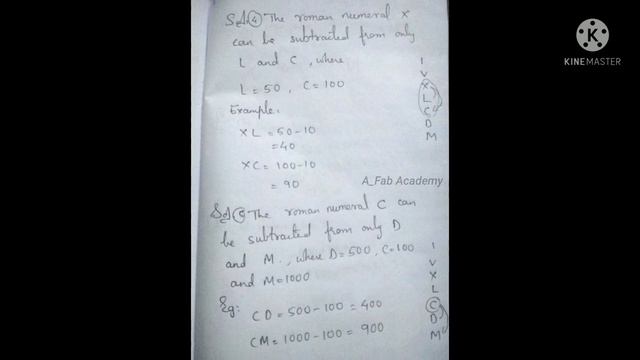 Sol④ The roman numeral X
can be subtracted from only
L and C, where
L = 50, C = 100
Example:
XL = 50-10
= 40
XC = 100-10
= 90
I
V
X
L
C
D
M
A_Fab Academy
Sol⑤ The roman numeral C can
be subtracted from only D
and M., where D = 500, C = 100
and M = 1000
Eg:
CD = 500-100 = 400
CM = 1000-100 = 900
I
V
X
L
C
D
M
K
KINEMASTER